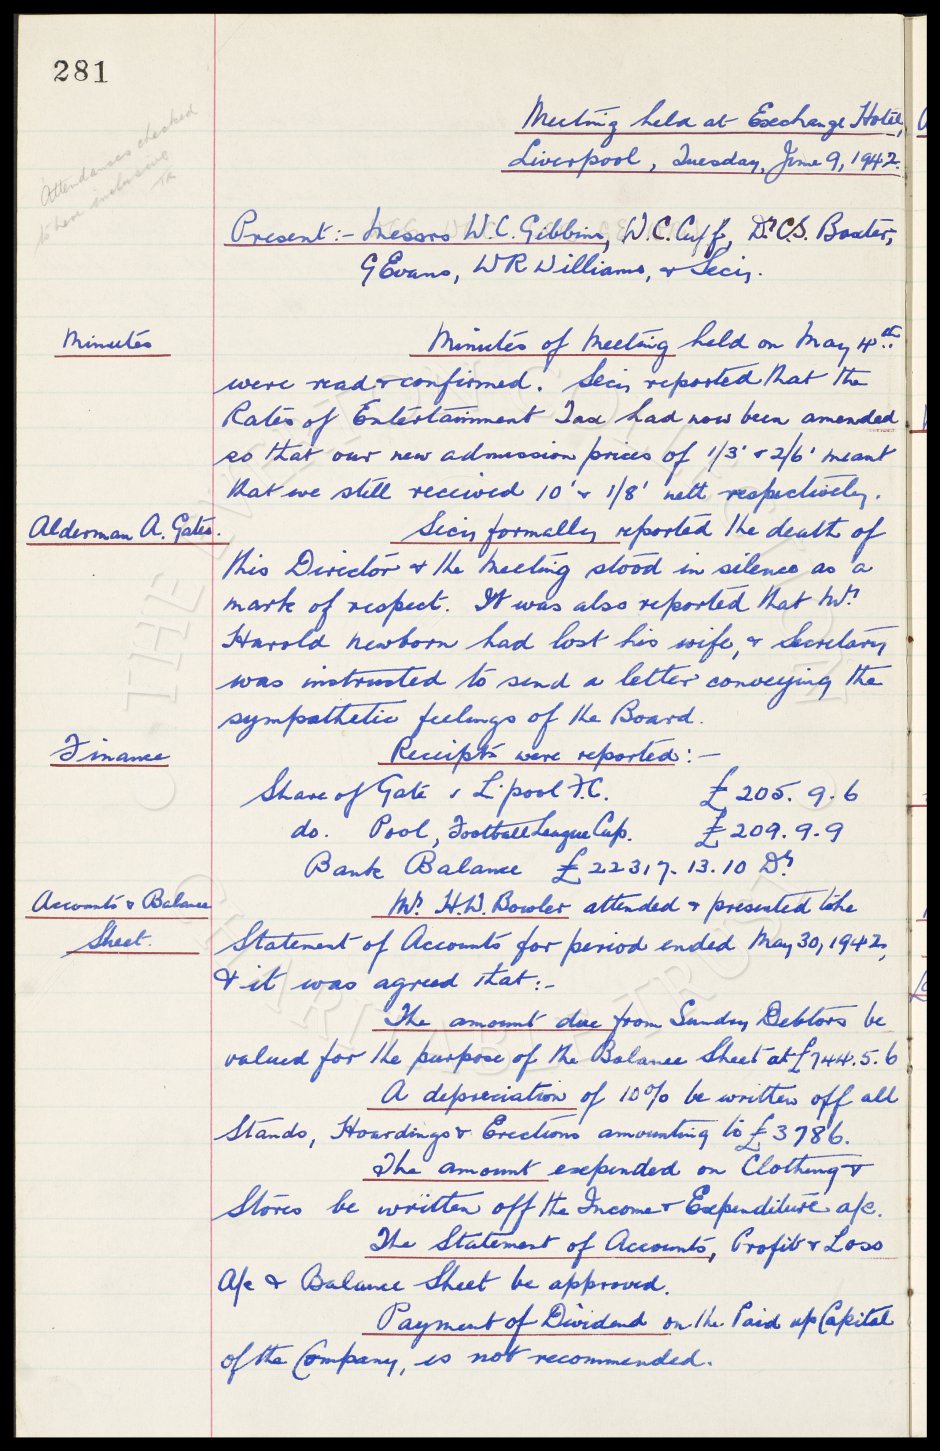 281
Attendances checked
to here inclusive
Meeting held at Exchange Hotel,
Liverpool, Tuesday, June 9, 1942.
Present:- Messrs W.C. Gibbins, W.C. Cuff, Dr C.S. Baxter,
G Evans, W R Williams, & Secy.
Minutes
Minutes of Meeting held on May 4th
were read & confirmed. Secy reported that the
Rates of Entertainment Tax had now been amended
so that our new admission prices of 1/3' & 2/6' meant
that we still received 10' & 1/8' nett respectively.
Alderman A. Gates.
Secy formally reported the death of
this Director & the Meeting stood in silence as a
mark of respect. It was also reported that Mr
Harold Newborn had lost his wife, & Secretary
was instructed to send a letter conveying the
sympathetic feelings of the Board.
Finance
Receipts were reported:-
Share of Gate v L'pool F.C. £205.9.6
do. Pool, Football League Cup. £209.9.9
Bank Balance £22317.13.10 Dr
Accounts & Balance
Sheet.
Mr. H.W. Bowler attended & presented the
Statement of Accounts for period ended May 30, 1942,
& it was agreed that:-
The amount due from Sundry Debtors be
valued for the purpose of the Balance Sheet at £744.5.6
A depreciation of 10% be written off all
Stands, Hoardings & Erections amounting to £3786.
The amount expended on Clothing &
Stores be written off the Income & Expenditure a/c.
The Statement of Accounts, Profit & Loss
A/c & Balance Sheet be approved.
Payment of Dividend on the Paid up Capital
of the Company, is not recommended.
THE EVERTON COLLECTION
CHARITABLE TRUST